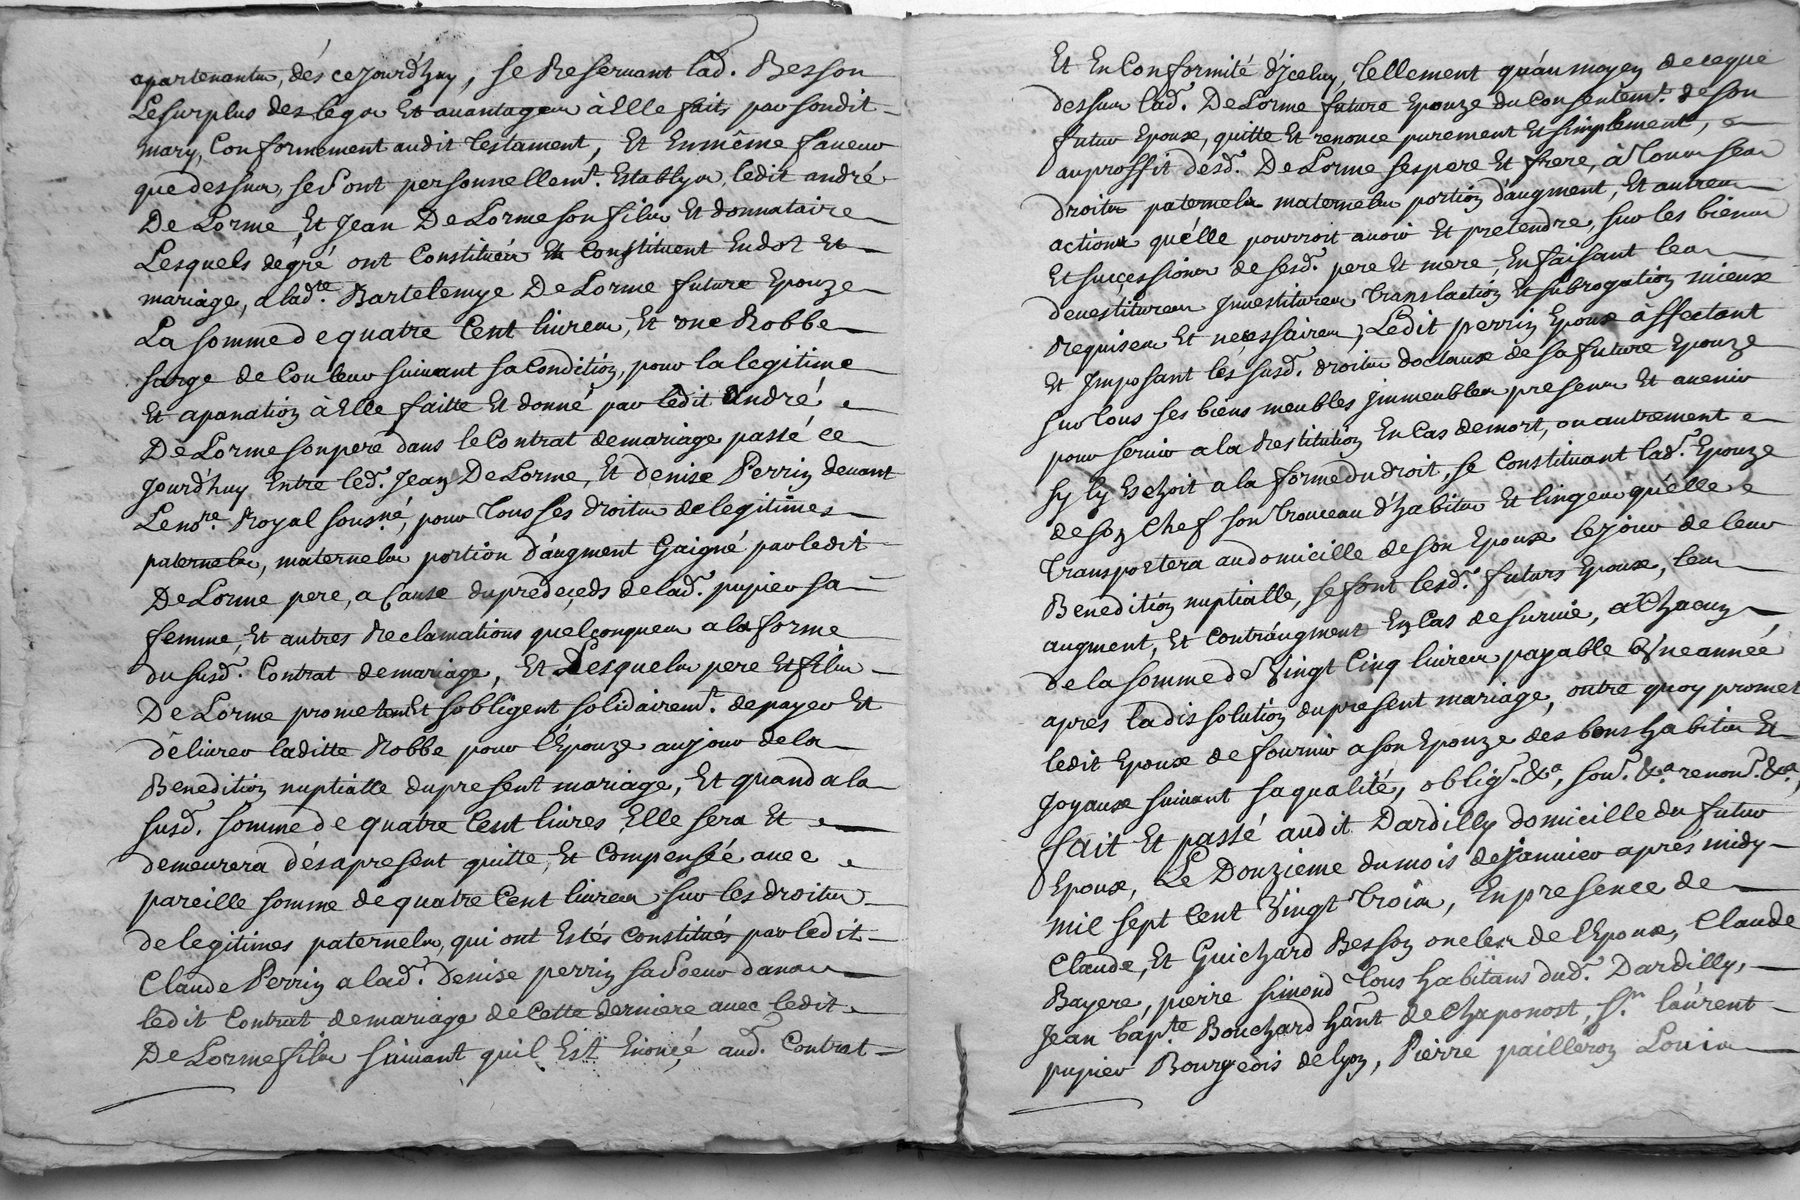 apartenantz, dés cejourdhuy, se Reservant lad. Besson
Le surplus des legz Et avantages à Elle faits par sondit
mary, Conformement audit testament, Et En même faveur
que dessus, se sont personnellemt. Establys, ledit andré
De Lorme, Et Jean De Lorme son fils Et donnataire
Lesquels de gré ont Constituéz Et Constituent En dot Et
mariage, a ladte. Bartelemye De Lorme future Epouze
La somme de quatre Cent livres, Et une Robbe
sarge de Couleur suivant sa Condition, pour la legitime
Et apanation à Elle faitte Et donné par ledit André
De Lorme son pere dans le Contrat de mariage passé ce
Jourd'huy Entre led. Jean De Lorme, Et Denise Perrin devant
Le nore. Royal sousné, pour tous ses droits de legitimes
paternels, maternels portion d'augment Gaigné par ledit
De Lorme pere, a Cause du prédeçeds de lad. pupier sa
femme, Et autres Reclamations quelconques a la forme
du susd. Contrat de mariage, Et Lesquels pere Et fils
De Lorme prometent Et sobligent solidairemt. de payer Et
délivrer laditte Robbe pour l'Epouze au jour de la
Benedition nuptialle du present mariage, Et quand a la
susd. somme de quatre Cent livres Elle sera Et
demeurera dés a present quitte, Et Compensée avec
pareille somme de quatre Cent livres sur les droits
de legitimes paternels, qui ont Estés Constitués par ledit
Claude Perrin a lad. Denise perrin sa soeur dans
ledit Contrat de mariage de Cette derniere avec ledit
De Lorme fils suivant quil Est Enoncé aud. Contrat
Et En Conformité d'Iceluy, tellement qu'au moyen de ce que
dessus lad. De Lorme future Epouze du Consentemt. de son
futur Epoux, quitte Et renonce purement Et simplement,
au proffit desd. De Lorme ses pere Et frere, à tous ses
droits paternels maternels portion d'augment, Et autres
actions qu'elle pourroit avoir Et pretendre, sur les biens
Et successions de sesd. pere Et mere, En faisant les
devestitures Investitures translaction Et subrogation mieux
Requises Et necessaires, Ledit perrin Epoux affectant
Et Imposant les susd. droits doctaux de sa future Epouze
sur tous ses biens meubles Jmmeubles presens Et avenir
pour servir a la Restitution En Cas de mort, ou autrement
sy ly Eschoit a la forme du droit, se Constituant lad. Epouze
de son Chef son trouceau d'habits Et linges qu'elle
transportera au domicille de son Epoux le jour de leur
Benedition nuptialle, se font lesd. futurs Epoux, leur
augment, Et Contraugment En Cas de survie, a Chacun
de la somme de Vingt Cinq livres payable Une année
apres la dissolution du present mariage, outre quoy promet
ledit Epoux de fournir a son Epouze des bons habits Et
Joyaux suivant sa qualité, oblign. &a, soun. &a. renonn. &a,
fait Et passé audit Dardilly domicille du futur
Epoux, Le Donzieme du mois de Janvier aprés midy
mil sept Cent Vingt trois, En presence de
Claude, Et Guichard Besson oncles de l'Epoux, Claude
Bayere, pierre simond tous habitans dud. Dardilly,
Jean bapte. Bouchard hant de Chaponost, Sr. laurent
pupier Bourgeois de lyon, Pierre pailleron Louis